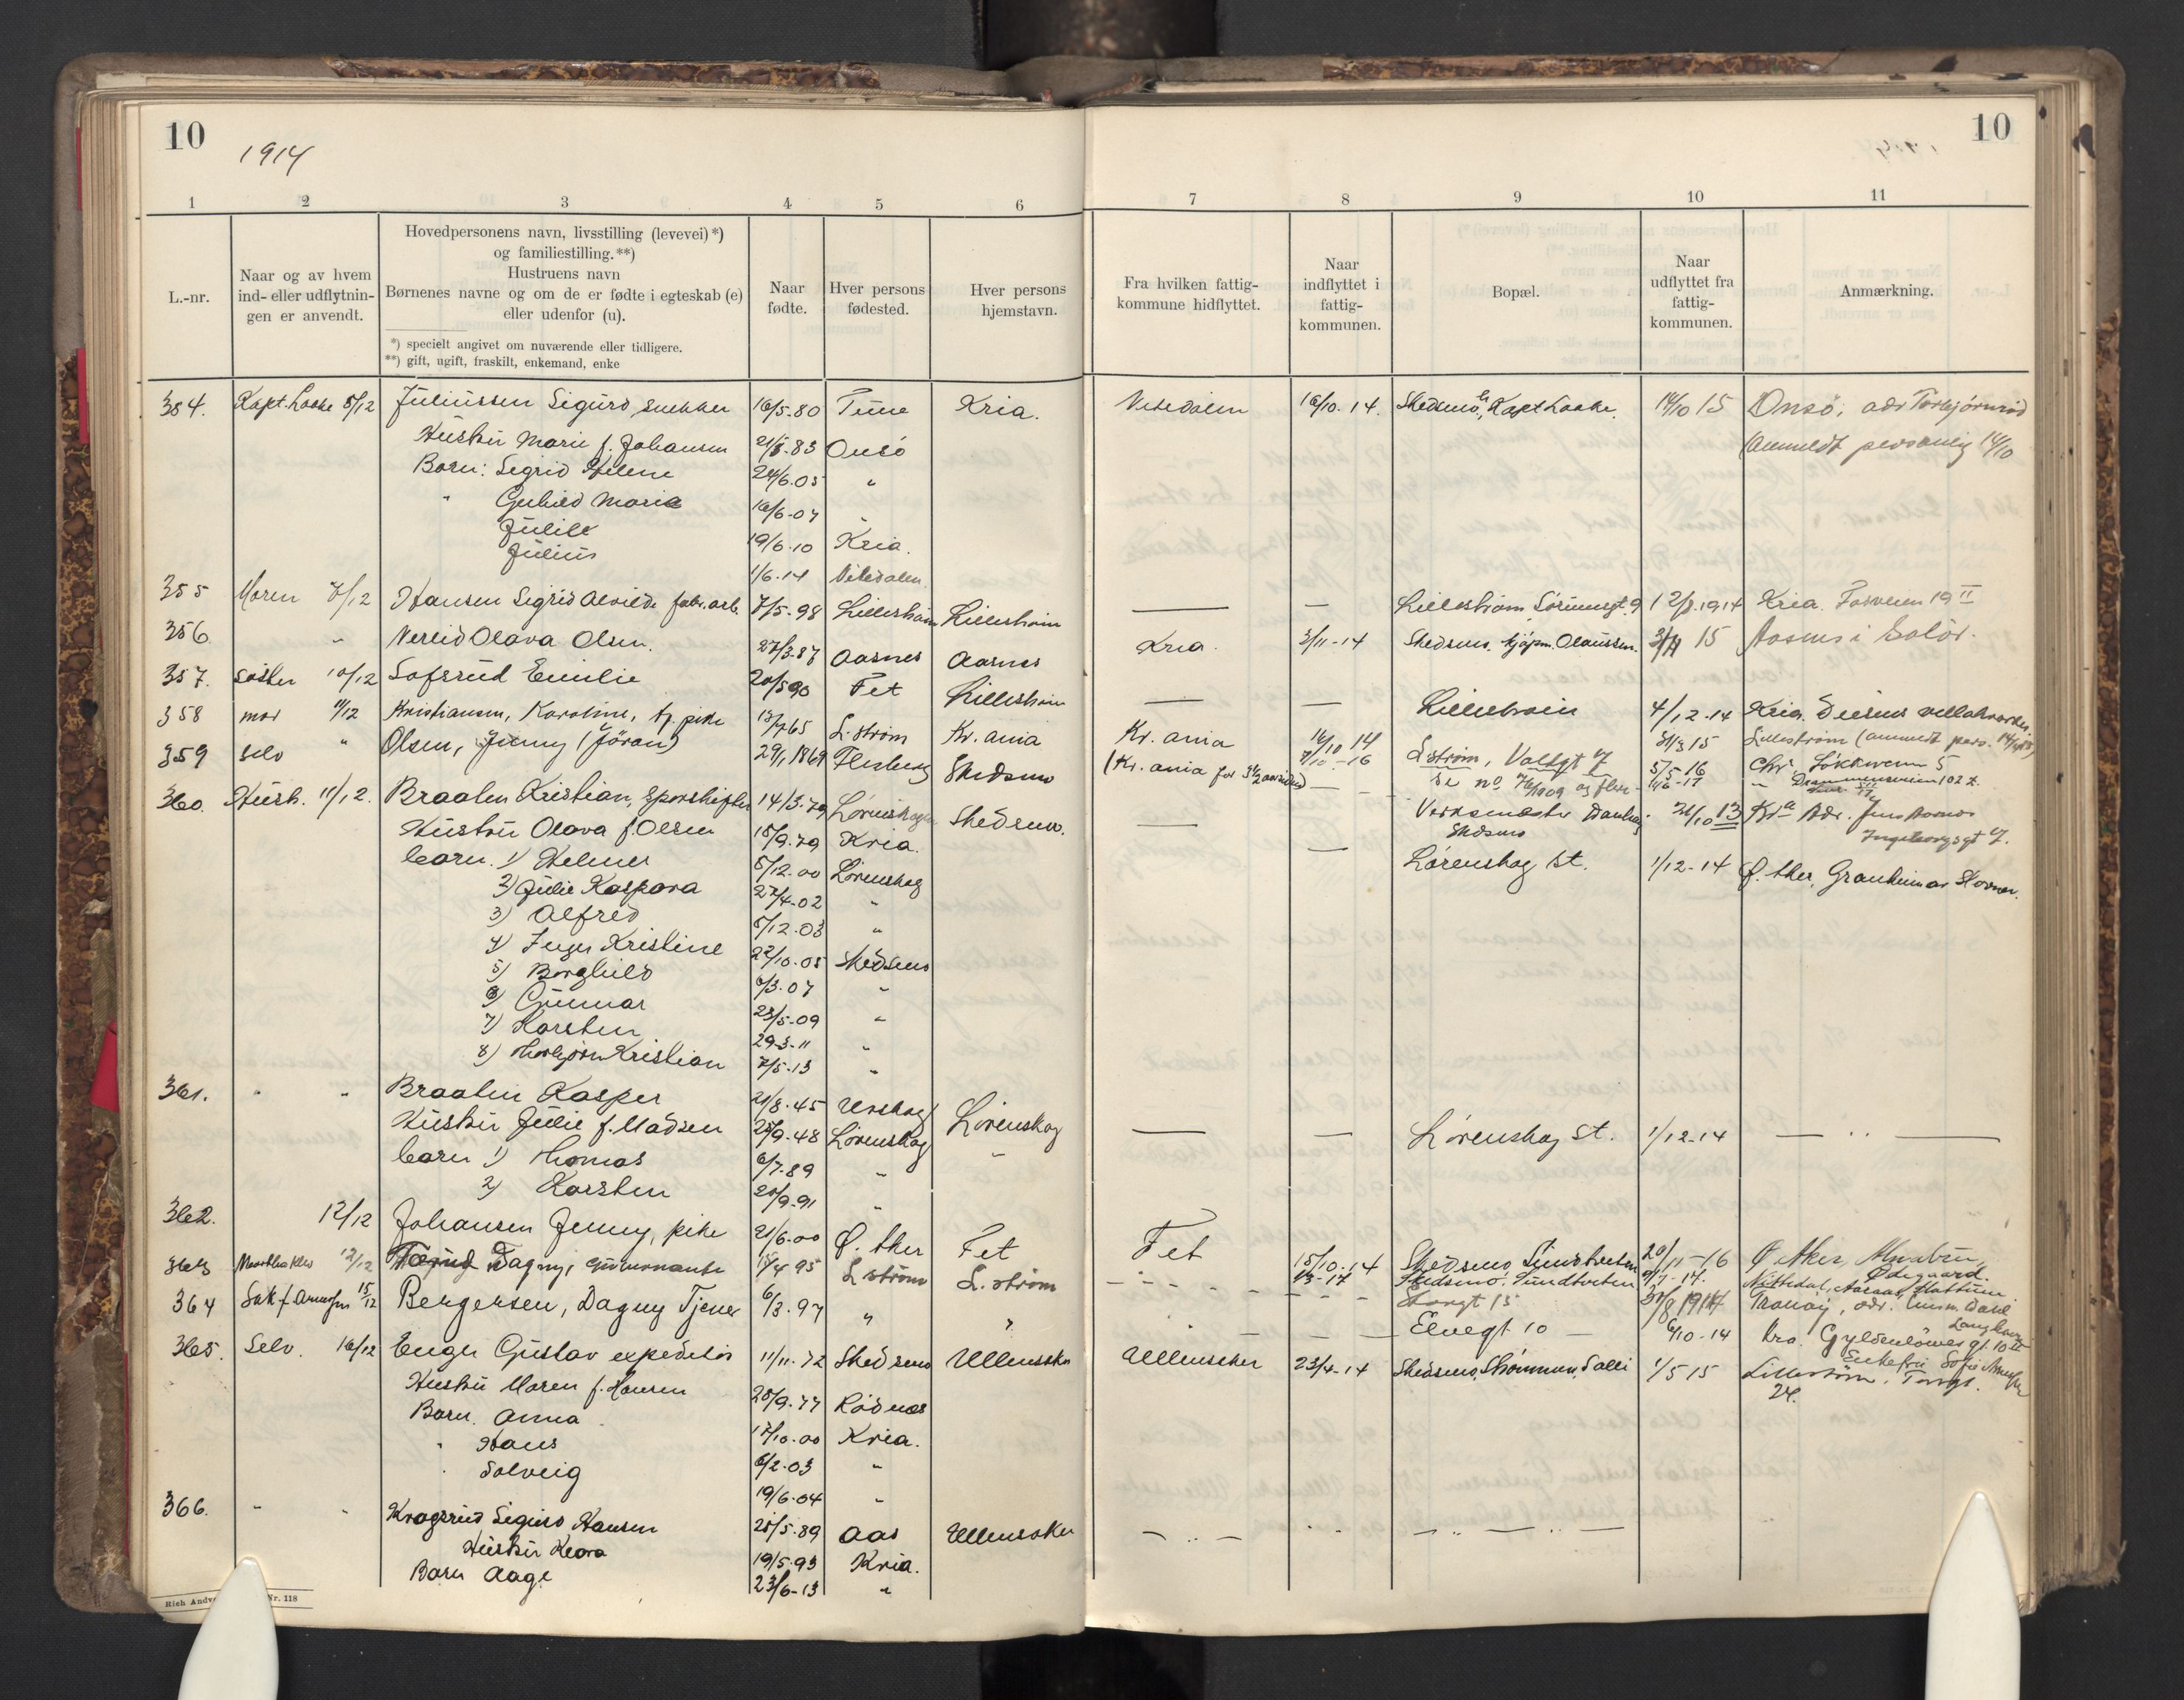 10
1914
10
1 2 3 4 5 6 7 8 9 10 11
L.-nr.
Naar og av hvem
ind- eller udflytnin-
gen er anvendt.
Hovedpersonens navn, livsstilling (levevei) *)
og familiestilling. **)
Hustruens navn
Børnenes navne og om de er fødte i egteskab (e)
eller udenfor (u).
*) specielt angivet om nuværende eller tidligere.
**) gift, ugift, fraskilt, enkemand, enke
Naar
fødte.
Hver persons
fødested.
Hver persons
hjemstavn.
Fra hvilken fattig-
kommune hidflyttet.
Naar
indflyttet i
fattig-
kommunen.
Bopæl.
Naar
udflyttet fra
fattig-
kommunen.
Anmærkning.
354. Kapt. Laake 8/12 Juliussen Sigurd, snekker 16/5-80 Tune Kria. Nitedalen 16/10-14. Skedsmo, Kapt Laake. 14/10 15 Onsö, adr Torbjörnröd
Hustru Marie f. Johansen 21/8-83 Onsö (anmeldt personlig 14/10
Barn: Sigrid Helene 24/6-05 "
" Gudrid Marie 16/6-07 "
Julie 19/6-10 Kria.
Julius 1/6-14 Nitedalen
355 Moren 7/12 Hansen Sigrid Alvilde fabr.arb. 7/5-98 Lillestrøm Lillestrøm — — Lillestrøm Sörumsgt. 9 12/8-1914 Kria. Fosveien 19 II
356 " Nerlid Olava Olsen. 27/3-87 Aasnes Aasnes Kria. 3/11-14 Skedsmo, kjøpm. Olaussen. 15 Aasnes i Solör.
357. Søster 10/12 Lofsrud Emilie 20/5 90 Fet Lillestrøm — — Lillestrøm 4/12-14 Kria.
358 mor 11/12 Kristiansen, Karoline, tj. pike 13/7 65 L.strøm Kr.ania Kr.ania 16/10 14 L.strøm, Voldgt 7 31/3 15 Lillestrøm (anmeldt pers. 14/4 15)
359 selv " Olsen, Jenny (Jöran) 29/1 1869 Flesberg Skedsmo (Kr.ania for 7/10-16 se no 76/1909 og flere 5/5-16 Chr Lökkeveien 5
16/6-17 " Drammensveien 102
360. Hustr. 11/12. Braaten Kristian, sporskifter 14/3-79 Lørenskogen Skedsmo. — — Verksmester Danberg 21/10 13 Kra Adr. Jens Aamos
Hustru Olava f. Olsen 18/9-79 Kria. Skedsmo Ingeborgsgt 7.
barn. 1) Helmer 5/12-00 Lørenskog Lørenskog st. 1/12-14 Ø. Aker, Granheim av Stovner.
2) Julie Kaspara 27/4-02 "
3) Alfred 5/12-03 "
4) Inger Kristine 22/10-05 Skedsmo
5) Borghild 6/3-07 "
6) Gunnar 23/5-09 "
7) Karsten 29-3-11 "
8) Thorbjørn Kristian 7/5-13 "
361. " " Braaten Kasper 21/8-45 Urskog Lørenskog — — Lørenskog st. 1/12-14 — " —
Hustru Julie f. Madsen 28/9-48 Lørenskog "
barn 1) Thomas 6/7-89 "
2) Karsten 20/9-91 "
362. 12/12 Johansen Jenny, pike 21/6-00 Ø. Aker Fet Fet 15/10-14 Skedsmo, Sundtveten 20/11-16 Ø Aker, Alnabru,
Ødegaard.
363 12/12 Dagny, guvernante 18/4 95 L strøm L. strøm 1/3-17 Skedsmo, Sundtveten 9/7-17. Nittedal,
364 Sak.f. Arnesen 15/12 Bergersen, Dagny Tjener 6/3-97 " " Storgt 15 Tranøy, adr.
Elvegt 10 6/10-14 Kra. Gyldenlöwes gt. 10 III
Enkefru Sofie
365. Selv. 16/12 Enger Gustav expeditör 11/11-72 Skedsmo Ullensaker Ullensaker 23/4-14 Skedsmo, Strømmen, Solli 1/5 15 Lillestrøm, Torvgt.
24.
Hustru Maren f. Hansen 28/9-77 Rödnæs
Barn. Anna 17/10-00 Kria.
" Hans 6/2-03 "
" Solveig 19/6-04 "
366. " " Kragsrud Sigurd Hansen 25/5-89 Aas Ullensaker — " — " " — " — " —
Hustru Klara 19/5-93 Kria.
Barn Aage 23/6-13 "
Rich Andv Nr. 118